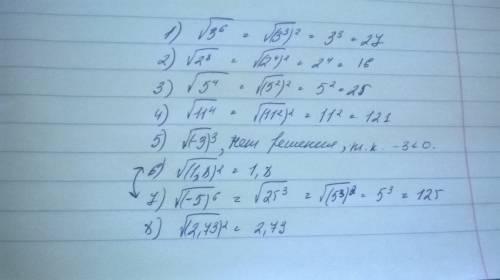 1) √3⁶ = √(3³)² = 3³ = 27
2) √2⁸ = √(2⁴)² = 2⁴ = 16
3) √5⁴ = √(5²)² = 5² = 25
4) √11⁴ = √(11²)² = 11² = 121
5) √(-3)³, нет решения, т.к. -3<0.
6) √(1,8)² = 1,8
7) √(-5)⁶ = √25³ = √(5³)² = 5³ = 125
8) √(2,73)² = 2,73